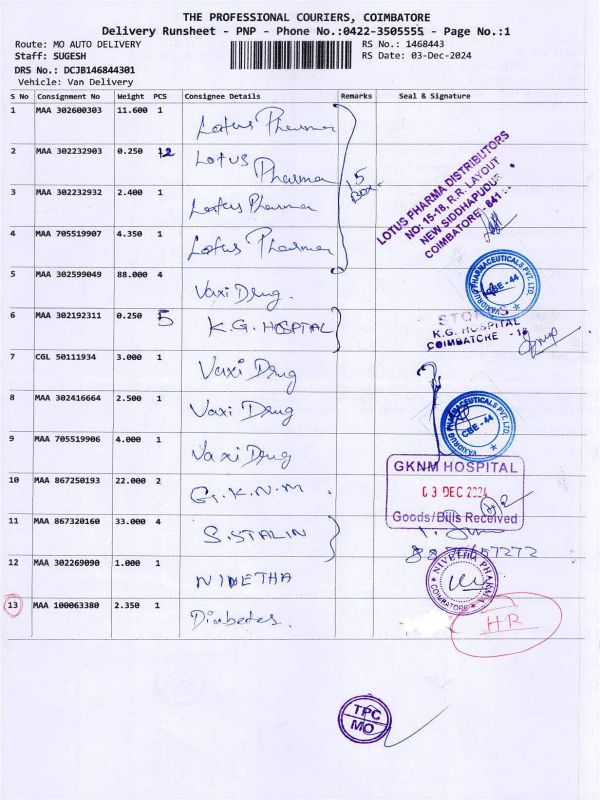 THE PROFESSIONAL COURIERS, COIMBATORE
Delivery Runsheet - PNP - Phone No.:0422-3505555 - Page No.:1
Route: MO AUTO DELIVERY RS No.: 1468443
Staff: SUGESH RS Date: 03-Dec-2024
DRS No.: DCJB146844301
Vehicle: Van Delivery
S No Consignment No Weight PCS Consignee Details Remarks Seal & Signature
1 MAA 302600303 11.600 1 Lotus Pharma
2 MAA 302232903 0.250 12 Lotus Pharma
15 Box
3 MAA 302232932 2.400 1 Lotus Pharma
4 MAA 705519907 4.350 1 Lotus Pharma
LOTUS PHARMA DISTRIBUTORS
NO: 15-18, R.R. LAYOUT
NEW SIDDHAPUDUR
COIMBATORE - 641
5 MAA 302599049 88.000 4 Vaxi Drug.
VAXIDRUG PHARMACEUTICALS PVT. LTD.
CBE - 44
6 MAA 302192311 0.250 5 K.G. HOSPITAL
K.G. HOSPITAL
COIMBATORE - 18
7 CGL 50111934 3.000 1 Vaxi Drug
8 MAA 302416664 2.500 1 Vaxi Drug
VAXIDRUG PHARMACEUTICALS PVT. LTD.
CBE - 44
9 MAA 705519906 4.000 1 Vaxi Drug
10 MAA 867250193 22.000 2 G.K.N.M.
GKNM HOSPITAL
03 DEC 2024
Goods/Bills Received
11 MAA 867320160 33.000 4 S.STALIN
12 MAA 302269090 1.000 1 NIVETHA
NIVETHA PHARMA
COIMBATORE
13 MAA 100063380 2.350 1 Diabetes.
HR
TPC
MO